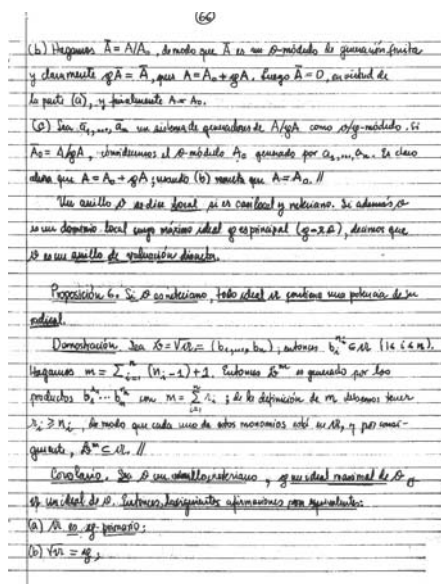 (66)
(b) Hagamos Ā = A/A₀, de modo que Ā es un 𝔬-módulo de generación finita
y claramente 𝔭Ā = Ā, pues A = A₀ + 𝔭A, luego Ā = 0, en virtud de
la parte (a), y finalmente A = A₀.
(c) Sea a₁,..., aₙ un sistema de generadores de A/𝔭A como 𝔬/𝔭-módulo. Si
A₀ = A/𝔭A, consideremos el 𝔬-módulo A₀ generado por a₁,..., aₙ. Es claro
ahora que A = A₀ + 𝔭A; usando (b) resulta que A = A₀. //
Un anillo 𝔬 se dice local si es casilocal y neteriano. Si además, 𝔬
es un dominio local cuyo máximo ideal 𝔭 es principal (𝔭 = π𝔬), decimos que
𝔬 es un anillo de valuación discreta.
Proposición 6. Si 𝔬 es neteriano, todo ideal 𝔞 contiene una potencia de su
radical.
Demostración. Sea 𝔟 = √𝔞 = (b₁,..., bₙ), entonces bᵢ^nᵢ ∈ 𝔞 (1 ≤ i ≤ n).
Hagamos m = Σᵢ₌₁ⁿ (nᵢ - 1) + 1. Entonces 𝔟^m es generado por los
productos b₁^r₁ ... bₙ^rₙ con m = Σᵢ₌₁ⁿ rᵢ; de la definición de m debemos tener
rᵢ ≥ nᵢ, de modo que cada uno de estos monomios está en 𝔞, y por consi-
guiente, 𝔟^m ⊂ 𝔞. //
Corolario. Sea 𝔬 un anillo neteriano, 𝔮 un ideal maximal de 𝔬 y
𝔞 un ideal de 𝔬. Entonces, las siguientes afirmaciones son equivalentes:
(a) 𝔞 es 𝔮-primario;
(b) √𝔞 = 𝔮;